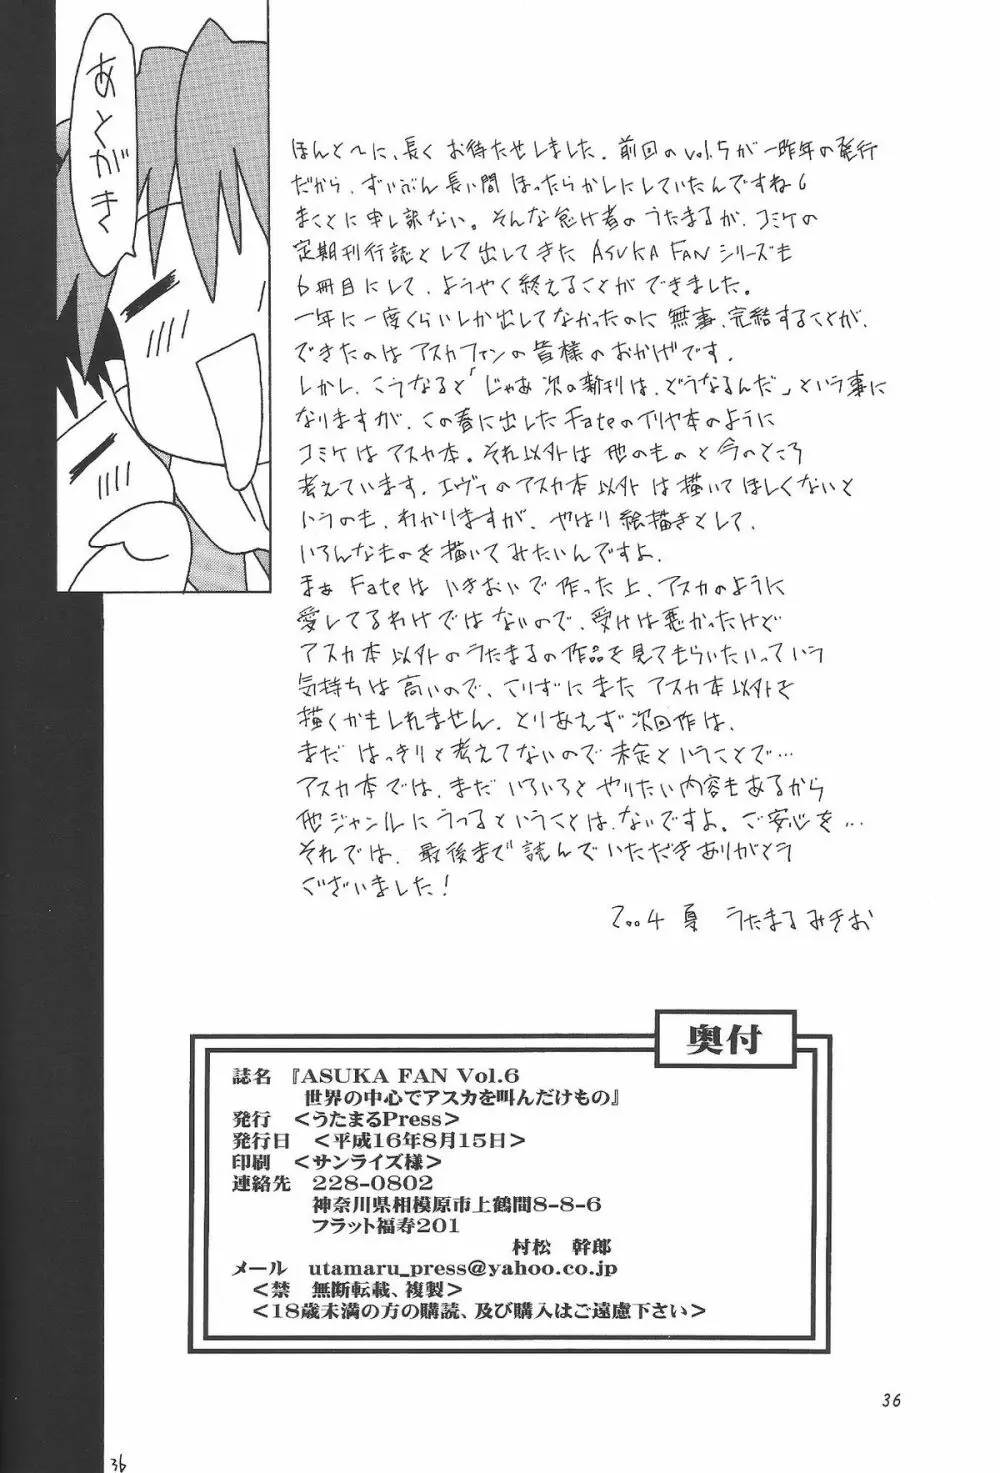 あとがき
ほんと〜に、長くお待たせしました。前回のvol.5が一昨年の発行
だから、ずいぶん長い間ほったらかしにしていたんですね。
まことに申し訳ない。そんな怠け者のうたまるが、コミケの
定期刊行誌として出してきたASUKA FANシリーズも
6冊目にして、ようやく終えることができました。
一年に一度くらいしか出してなかったのに無事、完結することが、
できたのはアスカファンの皆様のおかげです。
しかし、こうなると「じゃあ次の新刊は、どうなるんだ」という事に
なりますが、この春に出したFateのイリヤ本のように
コミケはアスカ本。それ以外は他のものと今のところ
考えています。エヴァのアスカ本以外は描いてほしくないと
いうのも、わかりますが、やはり絵描きとして、
いろんなものを描いてみたいんですよ。
まぁFateはいきおいで作った上、アスカのように
愛してるわけではないので、受けは悪かったけど
アスカ本以外のうたまるの作品を見てもらいたいっていう
気持ちは高いので、こりずにまたアスカ本以外を
描くかもしれません。とりあえず次回作は、
まだはっきりと考えてないので未定ということで…
アスカ本では、まだいろいろとやりたい内容もあるから
他ジャンルにうつるということは、ないですよ。ご安心を…
それでは、最後まで読んでいただきありがとう
ございました!
2004 夏 うたまるみきお
奥付
誌名 『ASUKA FAN Vol.6
世界の中心でアスカを叫んだけもの』
発行 <うたまるPress>
発行日 <平成16年8月15日>
印刷 <サンライズ様>
連絡先 228-0802
神奈川県相模原市上鶴間8-8-6
フラット福寿201
村松 幹郎
メール utamaru_press@yahoo.co.jp
<禁 無断転載、複製>
<18歳未満の方の購読、及び購入はご遠慮下さい>
36
36